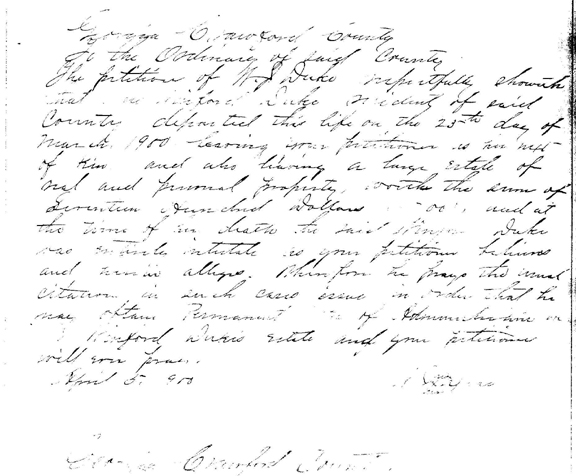 Georgia Crawford County
To the Ordinary of said County
The petition of W J Duke respectfully showeth
that Winford Duke resident of said
County departed this life on the 25th day of
March 1900 leaving your petitioner as his next
of Kin and also leaving a large estate of
real and personal property, worth the sum of
Seventeen Hundred Dollars and at
the time of his death the said Duke
was entirely intestate as your petitioner believes
and herein alleges. Wherefore he prays the usual
citation in such cases issue in order that he
may obtain Permanent of Administration on
Winford Dukes estate and your petitioner
will ever pray.
April 5, 900
Georgia Crawford County.